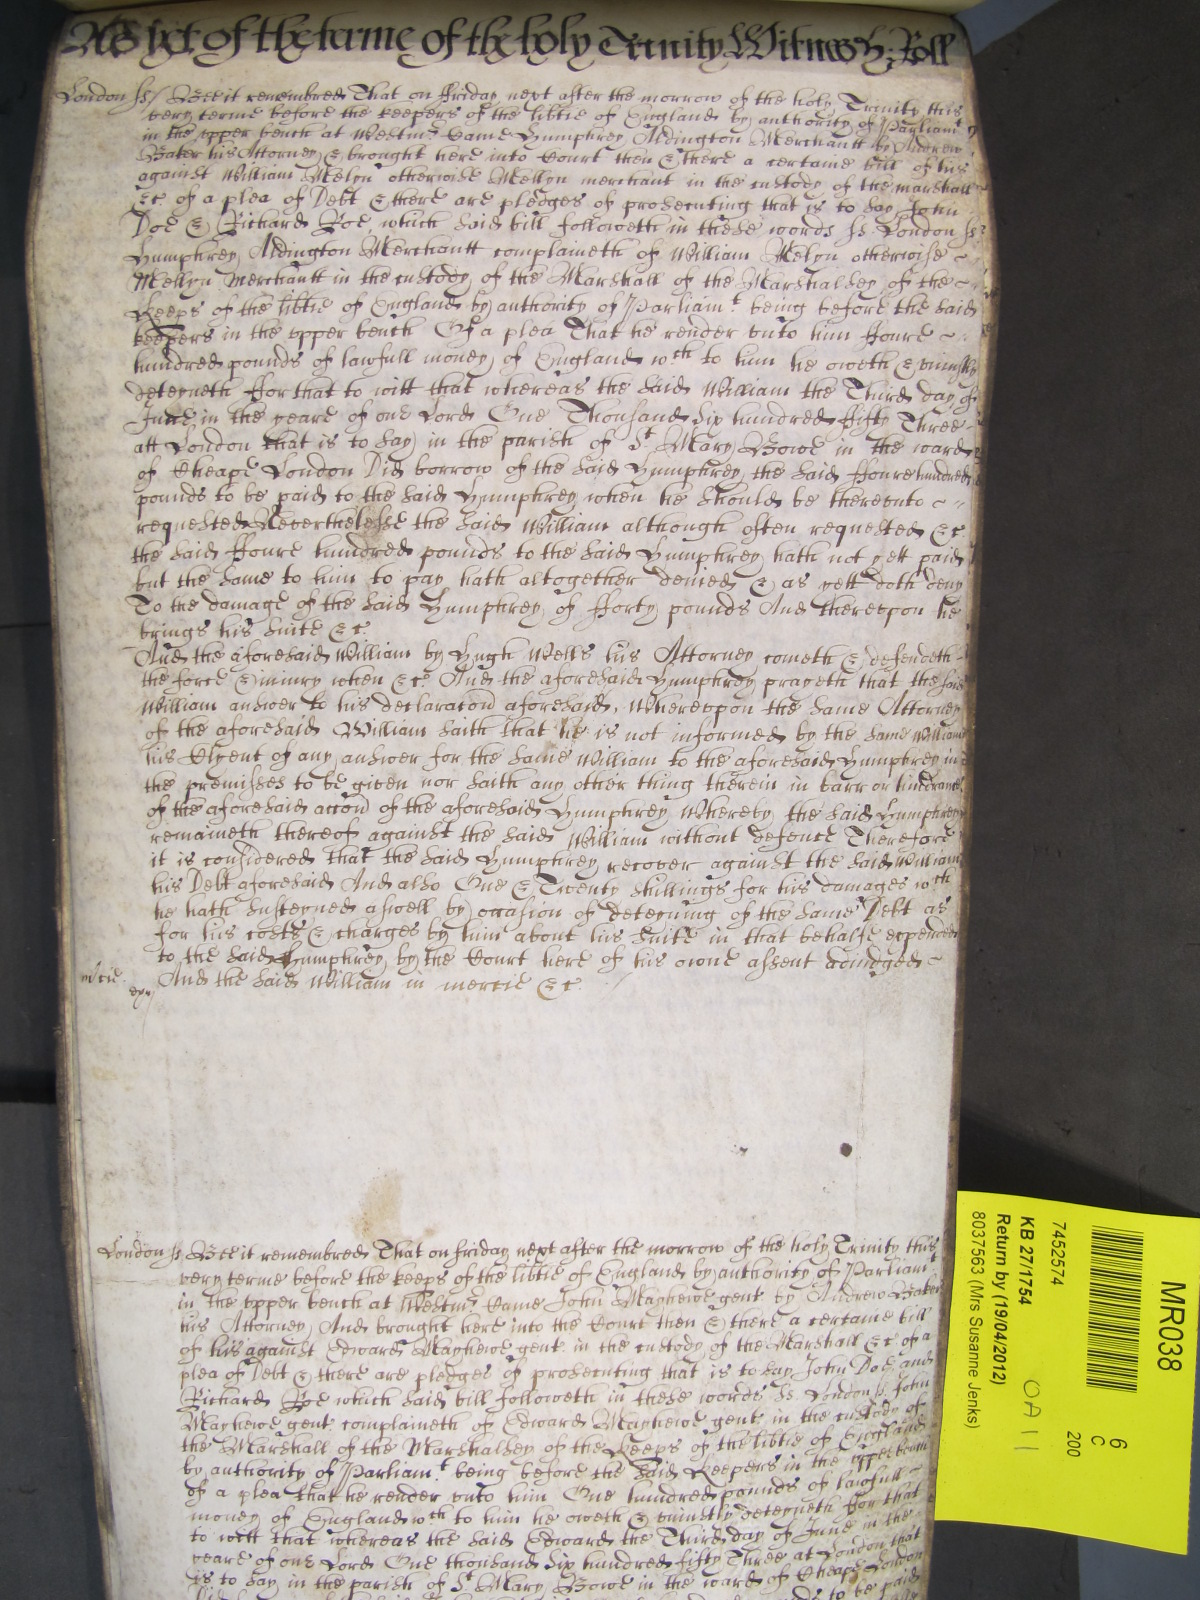 As yet of the terme of the holy Trinity Witnes H: Roll
London ss/ Bee it remembred That on ffriday next after the morrow of the holy Trinity this
very terme before the keepers of the libtie of England by authority of Parliamt
in the upper bench at Westmr Came Humphrey Aldington Merchantt by Andrew
Baker his Attorney & brought here into Court then & there a certaine bill of his
against William Melyn otherwise Mellyn merchant in the custody of the marshall
&c of a plea of Debt & there are pledges of prosecuting that is to say John
Doe & Richard Roe, which said bill followeth in these words ss London ss
Humphrey Aldington Merchantt complaineth of William Melyn otherwise
Mellyn Merchantt in the custody of the Marshall of the Marshalsey of the
Keeps of the libtie of England by authority of Parliamt being before the said
keepers in the upper bench Of a plea That he render unto him ffoure
hundred pounds of lawfull money of England wch to him he oweth & uniustly
deteyneth ffor that to witt that whereas the said William the Third day of
June in the yeare of our Lord One Thousand Six hundred ffifty Three
att London that is to say in the parish of St Mary Bowe in the ward
of Cheape London Did borrow of the said Humphrey the said ffoure hundred
pounds to be paid to the said Humphrey when he should be thereunto
requested Neverthelesse the said William although often requested &c
the said ffoure hundred pounds to the said Humphrey hath not yett paid
but the same to him to pay hath altogether denied & as yett doth deny
To the damage of the said Humphrey of fforty pounds And thereupon he
brings his suite &c
And the aforesaid William by Hugh Wells his Attorney cometh & defendeth
the force & iniury when &c And the aforesaid Humphrey prayeth that the said
William answer to his declaracon aforesaid, Whereupon the same Attorney
of the aforesaid William saith that he is not informed by the same William
his Clyent of any answer for the same William to the aforesaid Humphrey in
the premisses to be given nor saith any other thing therein in barr or hindrance
of the aforesaid accon of the aforesaid Humphrey Whereby the said Humphrey
remaineth thereof against the said William without defence Therefore
it is considered that the said Humphrey recover against the said William
his Debt aforesaid And also One & Twenty shillings for his damages wch
he hath susteyned aswell by occasion of deteyning of the same Debt as
for his costs & charges by him about his suite in that behalfe expended
to the said Humphrey by the Court here of his owne assent adiudged
mcie And the said William in mercie &c
London ss Bee it remembred That on ffriday next after the morrow of the holy Trinity this
very terme before the keeps of the libtie of England by authority of Parliamt
in the upper bench at Westmr Came John Mayhewe gent by Andrew Baker
his Attorney And brought here into the Court then & there a certaine bill
of his against Edward Mayhewe gent in the custody of the Marshall &c of a
plea of Debt & there are pledges of prosecuting that is to say John Doe and
Richard Roe which said bill followeth in these words ss London ss John
Mayhewe gent complaineth of Edward Mayhewe gent in the custody of
the Marshall of the Marshalsey of the Keeps of the libtie of England
by authority of Parliamt being before the said Keepers in the upper bench
of a plea that he render unto him One hundred pounds of lawfull
money of England wch to him he oweth & uniustly deteyneth for that
to witt that whereas the said Edward the Third day of June in the
yeare of our Lord One thousand Six hundred fifty Three at London that
is to say in the parish of St Mary Bowe in the ward of Cheape London
to be paid
MR038
6
C
200
7452574
KB 27/1754
Return by (19/04/2012)
8037563 (Mrs Susanne Jenks)
OA 11